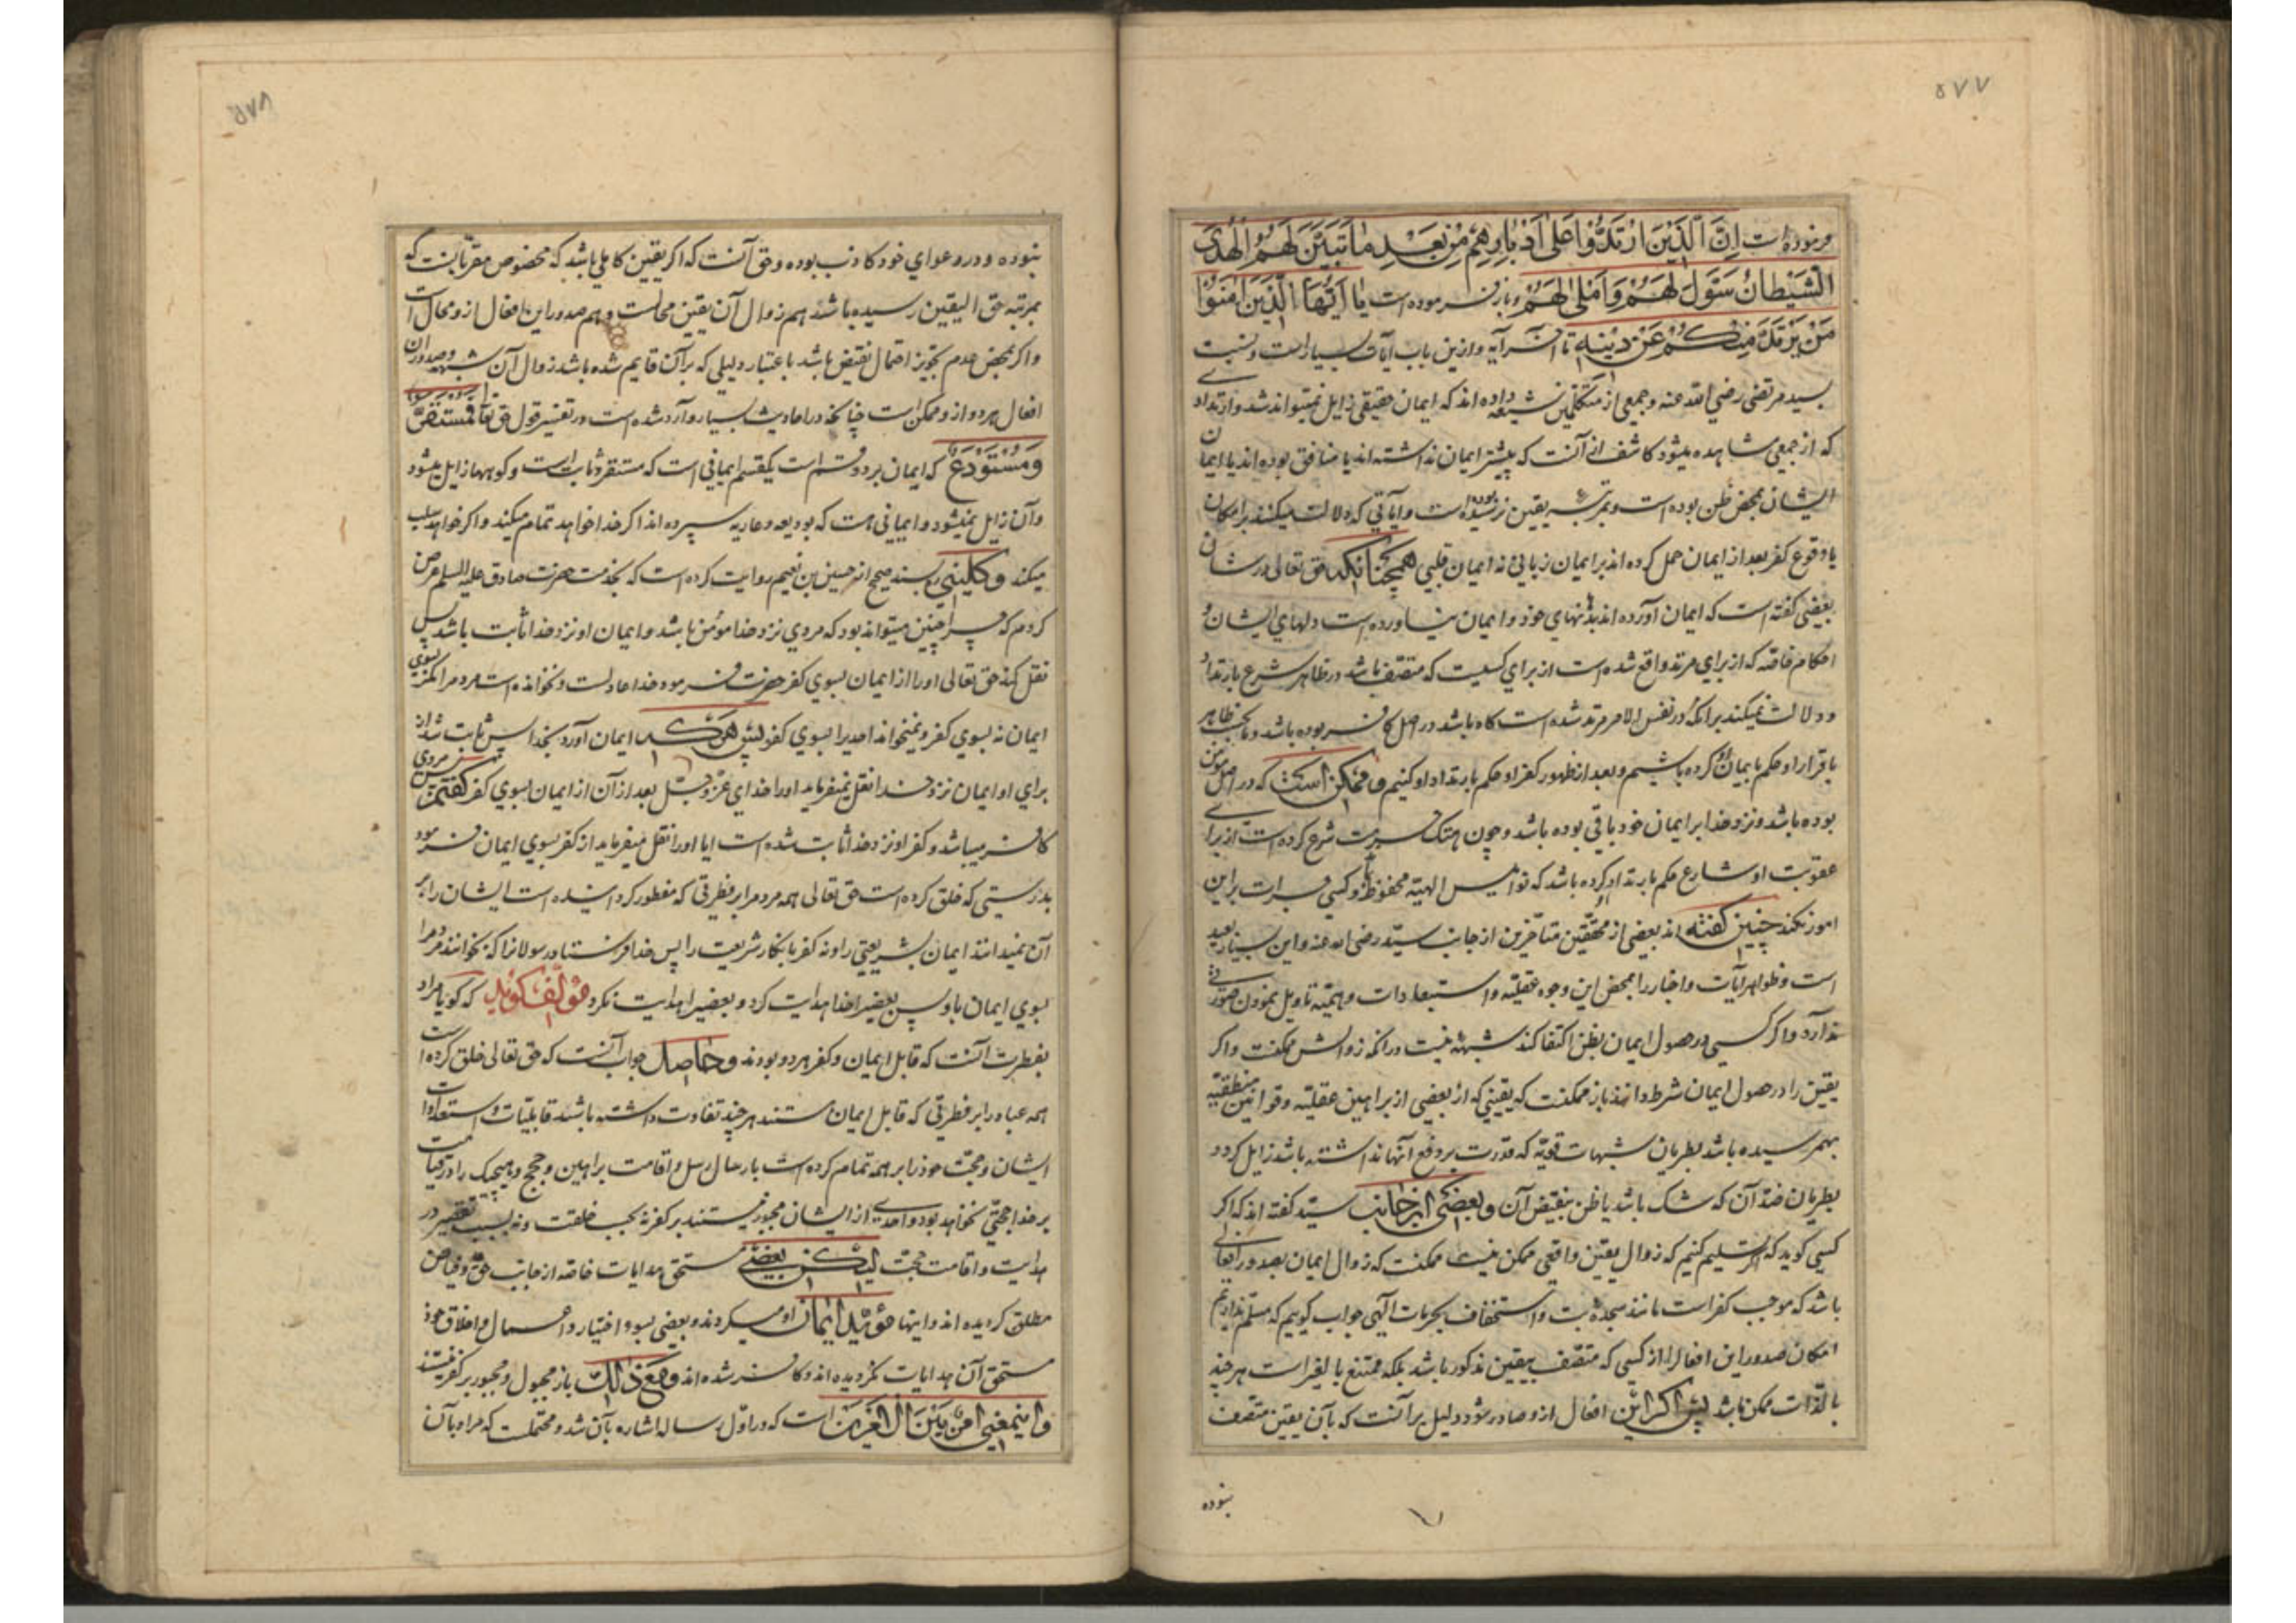 ۵۷۷
فرموده است اِنَّ الَّذِیْنَ ارْتَدُّوْا عَلیٰ اَدْبٰارِهِمْ مِنْ بَعْدِ مٰا تَبَیَّنَ لَهُمُ الْهُدَی
الشَّیْطٰانُ سَوَّلَ لَهُمْ وَاَمْلیٰ لَهُمْ و باز فرموده است یٰا اَیُّهَا الَّذِیْنَ اٰمَنُوْا
مَنْ یَرْتَدَّ مِنْکُمْ عَنْ دِیْنِهِ تا آخر آیه و ازین باب آیات بسیار است و نسبت
بسید مرتضی رضی الله عنه و جمعی از متکلمین شیعه داده اند که ایمان حقیقی زایل نمیتواند شد و ارتدادی
که از جمعی مشاهده میشود کاشف از آنست که پیشتر ایمان نداشته اند یا منافق بوده اند یا ایمان
ایشان بمحض ظن بوده است و بمرتبه یقین نرسیده بوده است و آیاتی که دلالت میکند بر امکان
یا وقوع کفر بعد از ایمان حمل کرده اند بر ایمان زبانی نه ایمان قلبی همچنانکه حق تعالی در شان
بعضی گفته است که ایمان آورده اند بدهنهای خود و ایمان نیاورده است دلهای ایشان و
احکام خاصه که از برای مرتد واقع شده است از برای کسیست که متصف باشد در ظاهر شرع بارتداد
و دلالت نمیکند بر آنکه در نفس الامر مرتد شده است گاه باشد در اصل کافر بوده باشد و بحسب ظاهر
باقرار او حکم بایمان او کرده باشیم و بعد از ظهور کفر او حکم بارتداد او کنیم و ممکن است که در اصل مؤمن
بوده باشد و نزد خدا بر ایمان خود باقی بوده باشد و چون هتک حرمت شرع کرده است از برای
عقوبت او شارع حکم بارتداد او کرده باشد که نوامیس الهیه محفوظ و کسی جرات بر این
امور نکند چنین گفته اند بعضی از محققین متاخرین از جانب سید رضی الله عنه و این بسیار بعید
است و ظواهر آیات و اخبار را بمحض این وجوه عقلیه و استبعادات وهمیه تاویل نمودن صورتی
ندارد و اگر کسی در حصول ایمان بظن اکتفا کند شبهه نیست در آنکه زوالش ممکنست و اگر
یقین را در حصول ایمان شرط دانند باز ممکنست که یقینی که از بعضی از براهین عقلیه و قوانین منطقیه
بهم رسیده باشد بطریان شبهات قویه که قدرت بر دفع آنها نداشته باشد زایل گردد و
بطریان ضد آن که شک باشد یا ظن بنقیض آن و بعضی از جانب سید گفته اند که اگر
کسی گوید که تسلیم کنیم که زوال یقین واقعی ممکن نیست ممکنست که زوال ایمان بصدور افعالی
باشد که موجب کفر است مانند سجده بت و استخفاف بحرمات الهی جواب گوییم که مسلم نداریم
امکان صدور این افعال را از کسی که متصف بیقین مذکور باشد بلکه ممتنع بالغیر است هر چند
بالذات ممکن باشد پس اگر این افعال از و صادر شود دلیل بر آنست که بآن یقین متصف
نبوده
۵۷۸
نبوده و در دعوای خود کاذب بوده و حق آنست که اگر یقین کاملی باشد که مخصوص مقربانست که
بمرتبه حق الیقین رسیده باشد هم زوال آن یقین محالست و هم صدور این افعال از و محال است
و اگر بمحض عدم تجویز احتمال نقیض باشد باعتبار دلیلی که بر آن قایم شده باشد زوال آن بشبهه و صدور آن
افعال هر دو از و ممکن است چنانکه در احادیث بسیار وارد شده است در تفسیر قول حق تعالی فَمُسْتَقَرٌّ
وَمُسْتَوْدَعٌ که ایمان بر دو قسم است یکقسم ایمانی است که مستقر و ثابت است و کوهها زایل میشود
و آن زایل نمیشود و ایمانی هست که بودیعه و عاریه سپرده اند اگر خدا خواهد تمام میکند و اگر خواهد سلب
میکند و کلینی بسند صحیح از حسین بن نعیم روایت کرده است که بخدمت حضرت صادق علیه السلام عرض
کردم که چرا چنین میتواند بود که مردی نزد خدا مؤمن باشد و ایمان او نزد خدا ثابت باشد پس
نقل کند حق تعالی او را از ایمان بسوی کفر حضرت فرمود خدا عادلست و نخوانده است مردم را مگر بسوی
ایمان نه بسوی کفر و نمیخواند احدیرا بسوی کفر پس هر که ایمان آورد بخدا پس ثابت شد از
برای او ایمان نزد خدا نقل نمیفرماید او را خدای عز و جل بعد از آن از ایمان بسوی کفر گفتم پس مردی
کافر میباشد و کفر او نزد خدا ثابت شده است ایا او را نقل میفرماید از کفر بسوی ایمان فرمود
بدرستی که خلق کرده است حق تعالی همه مردم را بر فطرتی که مفطور گردانیده است ایشان را بر
آن نمیدانند ایمان بشریعتی را و نه کفر بانکار شریعت را پس خدا فرستاد رسولانرا که بخوانند مردم را
بسوی ایمان باو پس بعضیرا خدا هدایت کرد و بعضیرا هدایت نکرد مؤلف گوید که گویا مراد
بفطرت آنست که قابل ایمان و کفر هر دو بودند و حاصل جواب آنست که حق تعالی خلق کرده است
همه عباد را بر فطرتی که قابل ایمان هستند هر چند تفاوت داشته باشند قابلیات و استعدادات
ایشان و حجت خود را بر همه تمام کرده است بارسال رسل و اقامت براهین و حجج و هیچیک را در قیامت
بر خدا حجتی نخواهد بود و احدی از ایشان مجبور نیستند بر کفر نه بحسب خلقت و نه بسبب تقصیر در
هدایت و اقامت حجت لیکن بعضی مستحق هدایات خاصه از جانب حق و فیاض
مطلق گردیده اند و اینها مؤید ایمان او میگردند و بعضی بسوء اختیار و اعمال و اخلاق خود
مستحق آن هدایات نگردیده اند و کافر شده اند و مع ذلک باز مجبول و مجبور بر کفر نیستند
و اینمعنی امر بین الامرین است که در اول رساله اشاره بآن شد و محتملست که مراد بآن